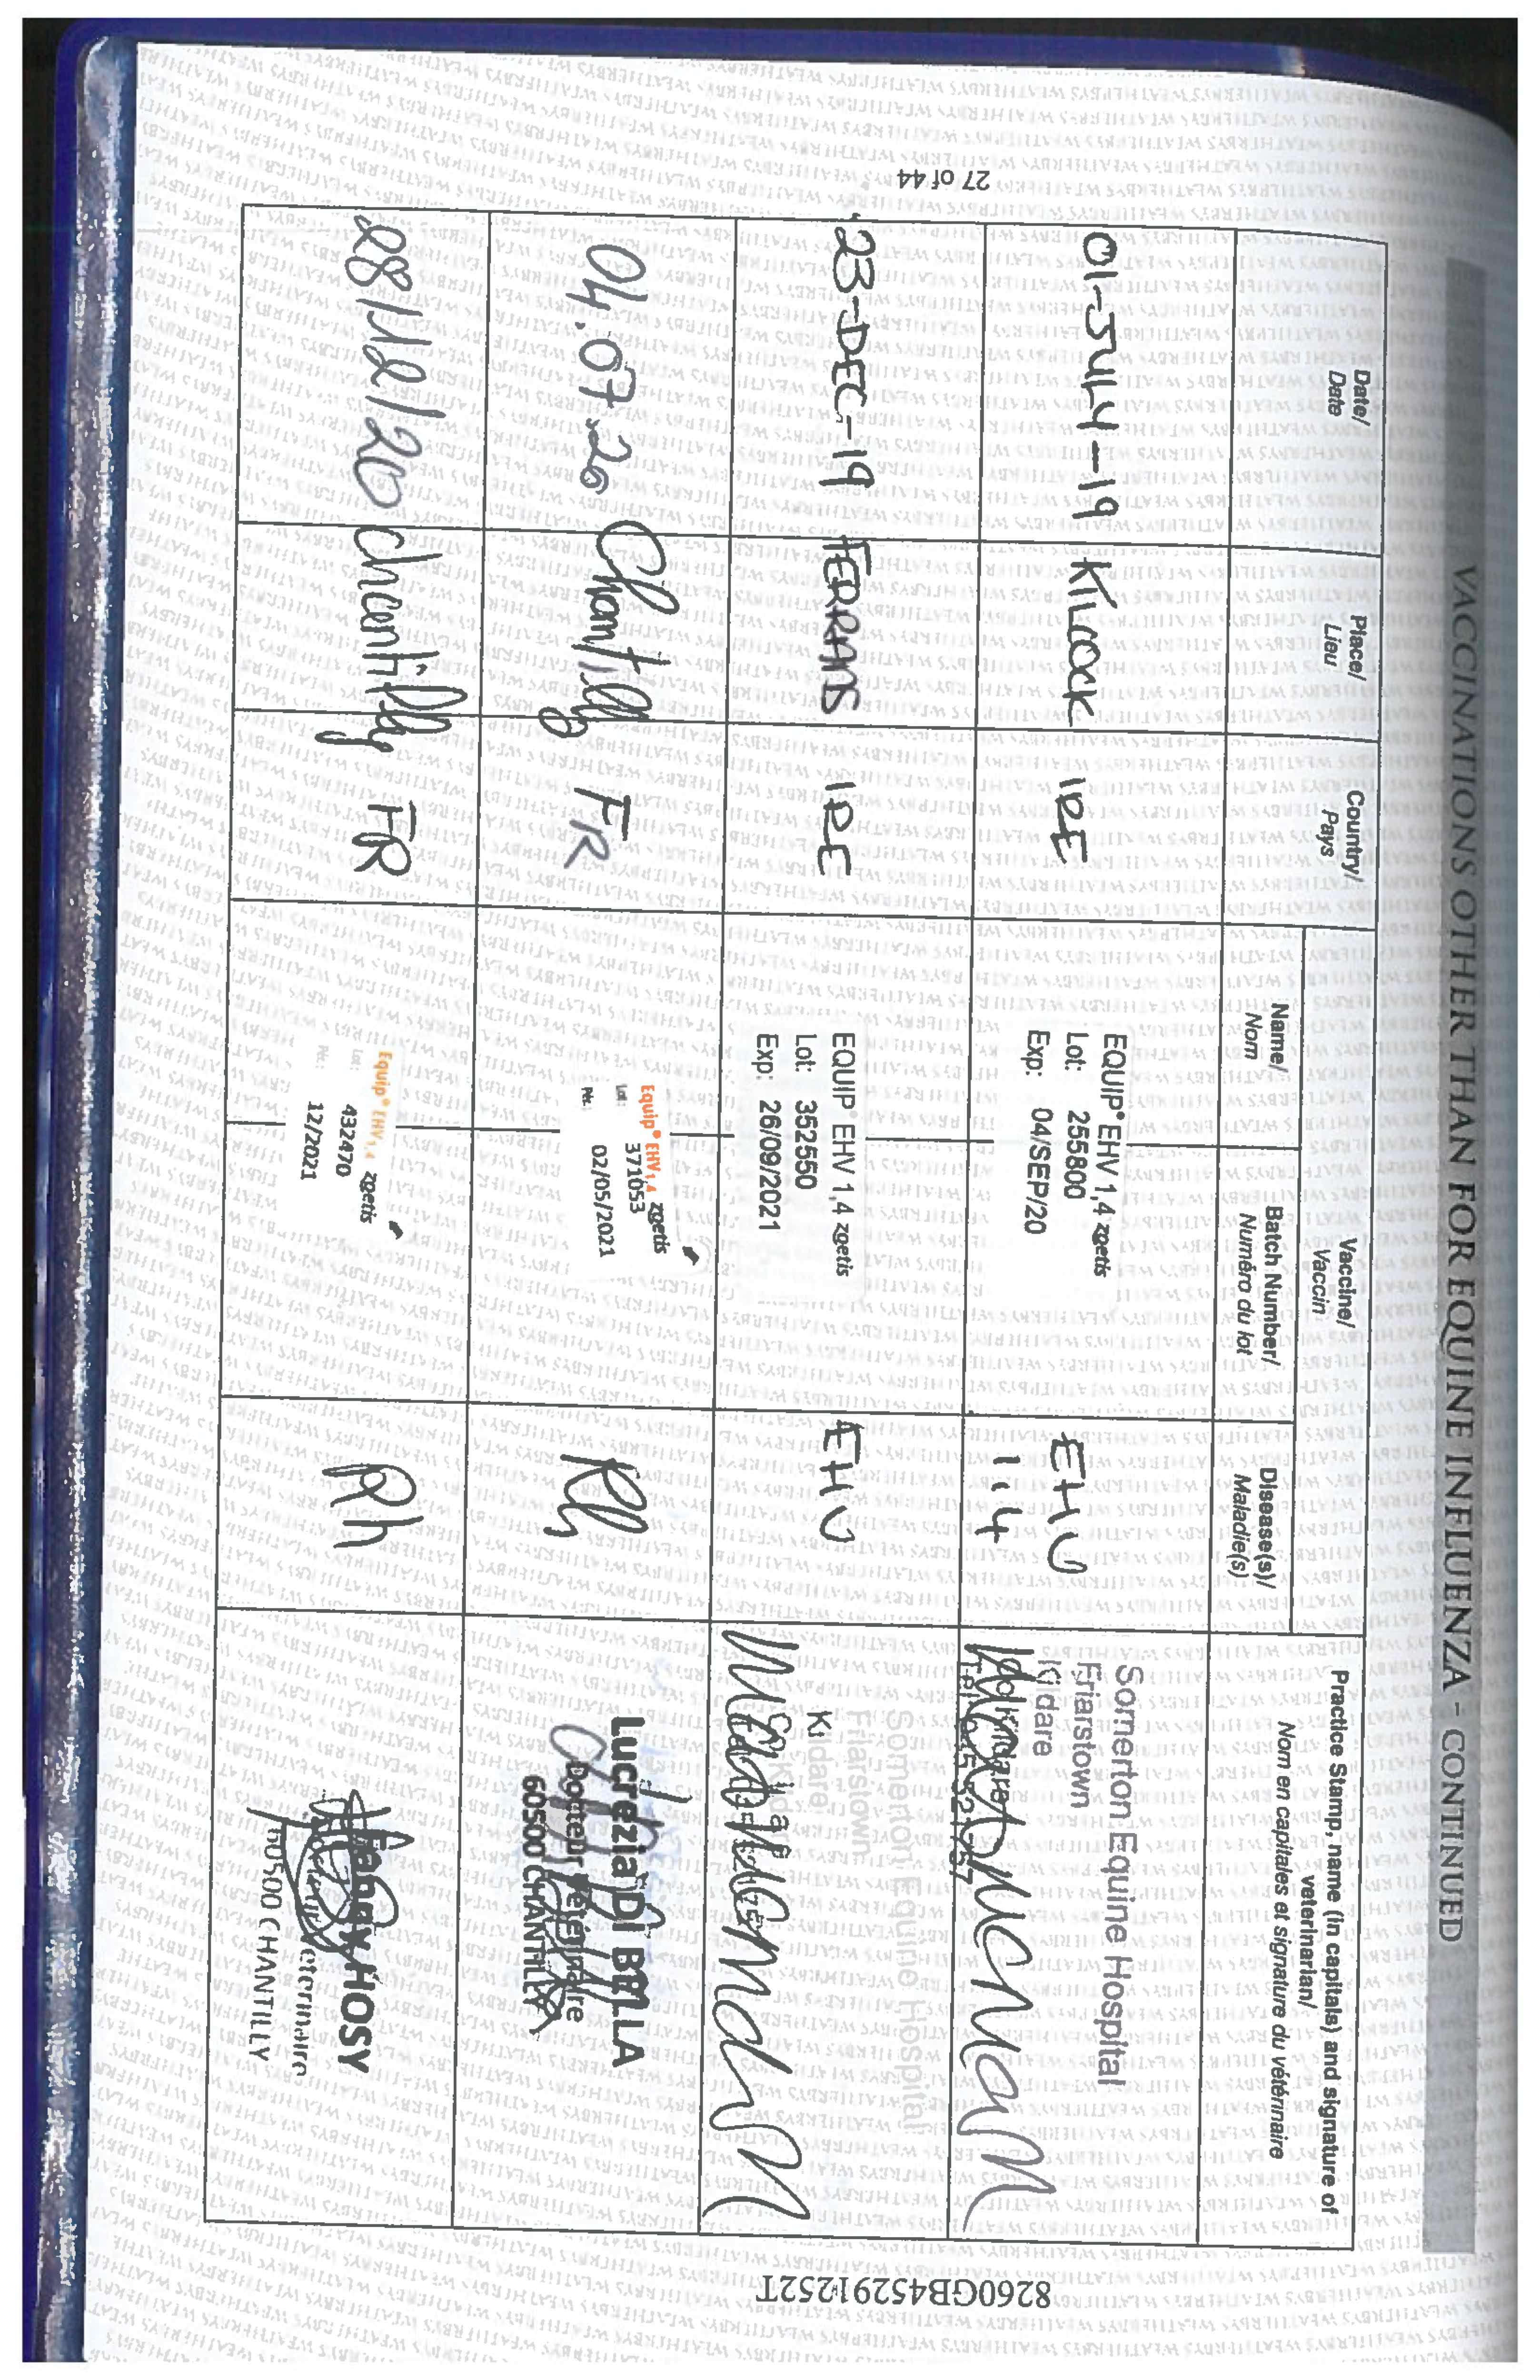 VACCINATIONS OTHER THAN FOR EQUINE INFLUENZA - CONTINUED
Date/
Date
Place/
Lieu
Country/
Pays
Vaccine/
Vaccin
Name/
Nom
Batch Number/
Numéro du lot
Disease(s)/
Maladie(s)
Practice Stamp, name (in capitals) and signature of
veterinarian/
Nom en capitales et signature du vétérinaire
01-JULY-19
KILCOCK
IRE
EQUIP® EHV 1,4 zoetis
Lot: 255800
Exp: 04/SEP/20
EHV
1.4
Somerton Equine Hospital
Friarstown
Kildare
23-DEC-19
FERRANS
IRE
EQUIP® EHV 1,4 zoetis
Lot: 352550
Exp: 26/09/2021
EHV
Somerton Equine Hospital
Friarstown
Kildare
04.07.20
Chantilly
FR
Equip® EHV 1,4 zoetis
Lot: 371053
Pér. 02/05/2021
Rh
Lucrezia DI BELLA
Docteur Vétérinaire
60500 CHANTILLY
28/12/20
Chantilly
FR
Equip® EHV 1,4 zoetis
Lot: 432470
Pér. 12/2021
Rh
HOSY
60500 CHANTILLY
27 of 44
8260GB45291252T